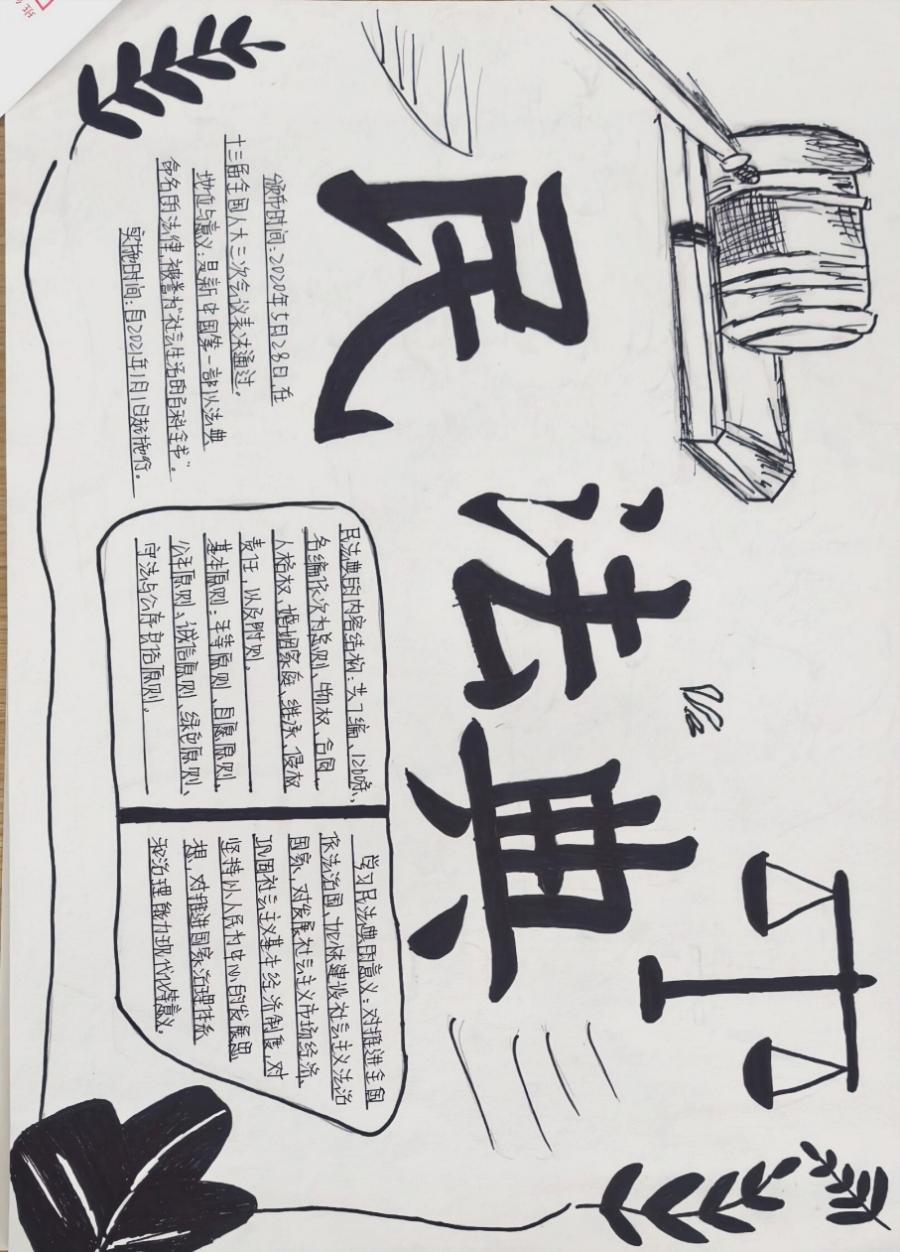 民法典
颁布时间：2020年5月28日，在
十三届全国人大三次会议表决通过。
地位与意义：是新中国第一部以法典
命名的法律，被誉为"社会生活的百科全书"。
实施时间：自2021年1月1日起施行。
民法典的内容结构：共7编、1260条，
各编依次为总则、物权、合同、
人格权、婚姻家庭、继承、侵权
责任，以及附则。
基本原则：平等原则、自愿原则、
公平原则、诚信原则、绿色原则、
守法与公序良俗原则。
学习民法典的意义：对推进全面
依法治国、加快建设社会主义法治
国家，对发展社会主义市场经济、
巩固社会主义基本经济制度，对
坚持以人民为中心的发展思
想，对推进国家治理体系
和治理能力现代化等意义。